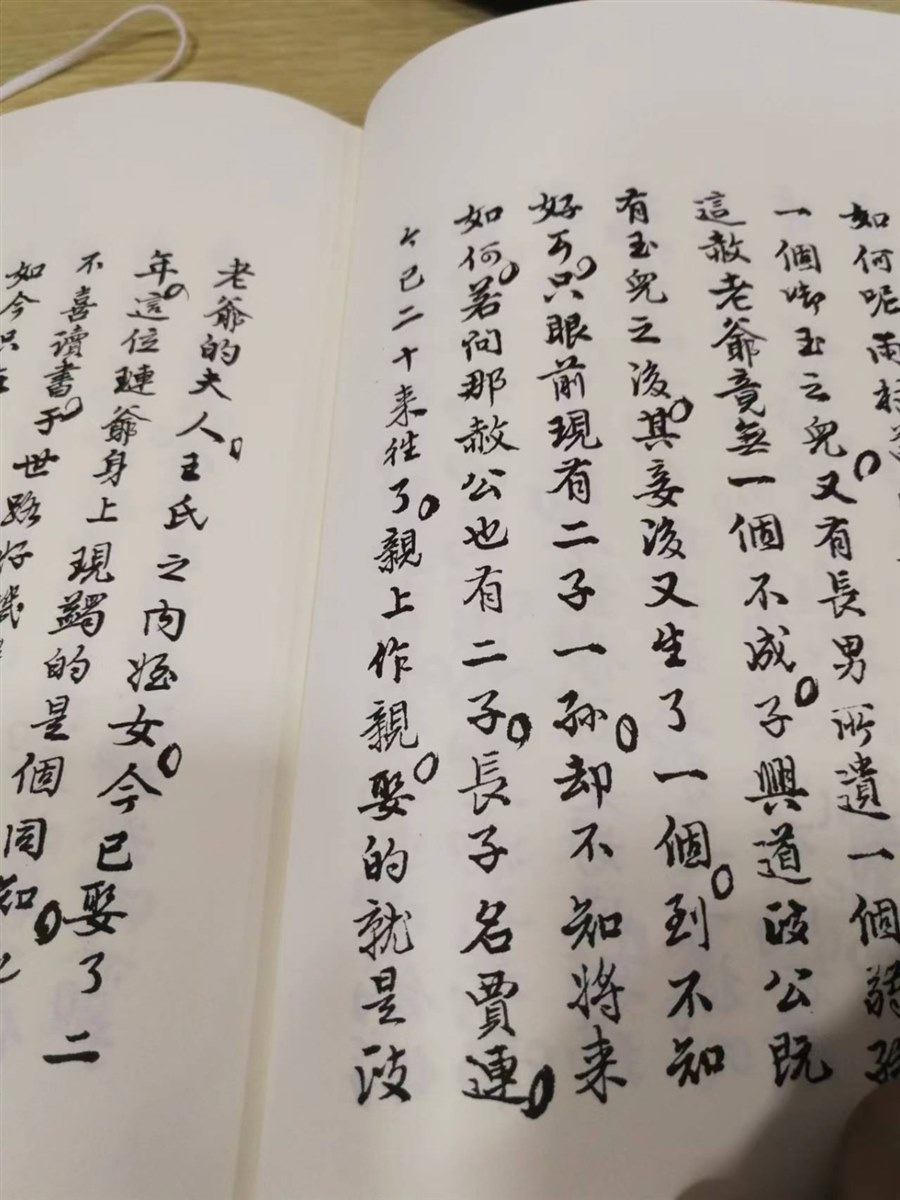 如何呢雨村道
一個啣玉之兒。又有長男所遺一個
這赦老爺竟無一個不成。子興道政公既
有玉兒之後。其妾後又生了一個。到不知
好歹。只眼前現有二子一孫。却不知將来
如何。若问那赦公也有二子。長子名賈連。
今已二十来往了。親上作親。娶的就是政
老爺的夫人。王氏之内姪女。今已娶了二
年。這位璉爺身上現蠲的是個同知。也
不喜讀書。于世路好機
如今只在